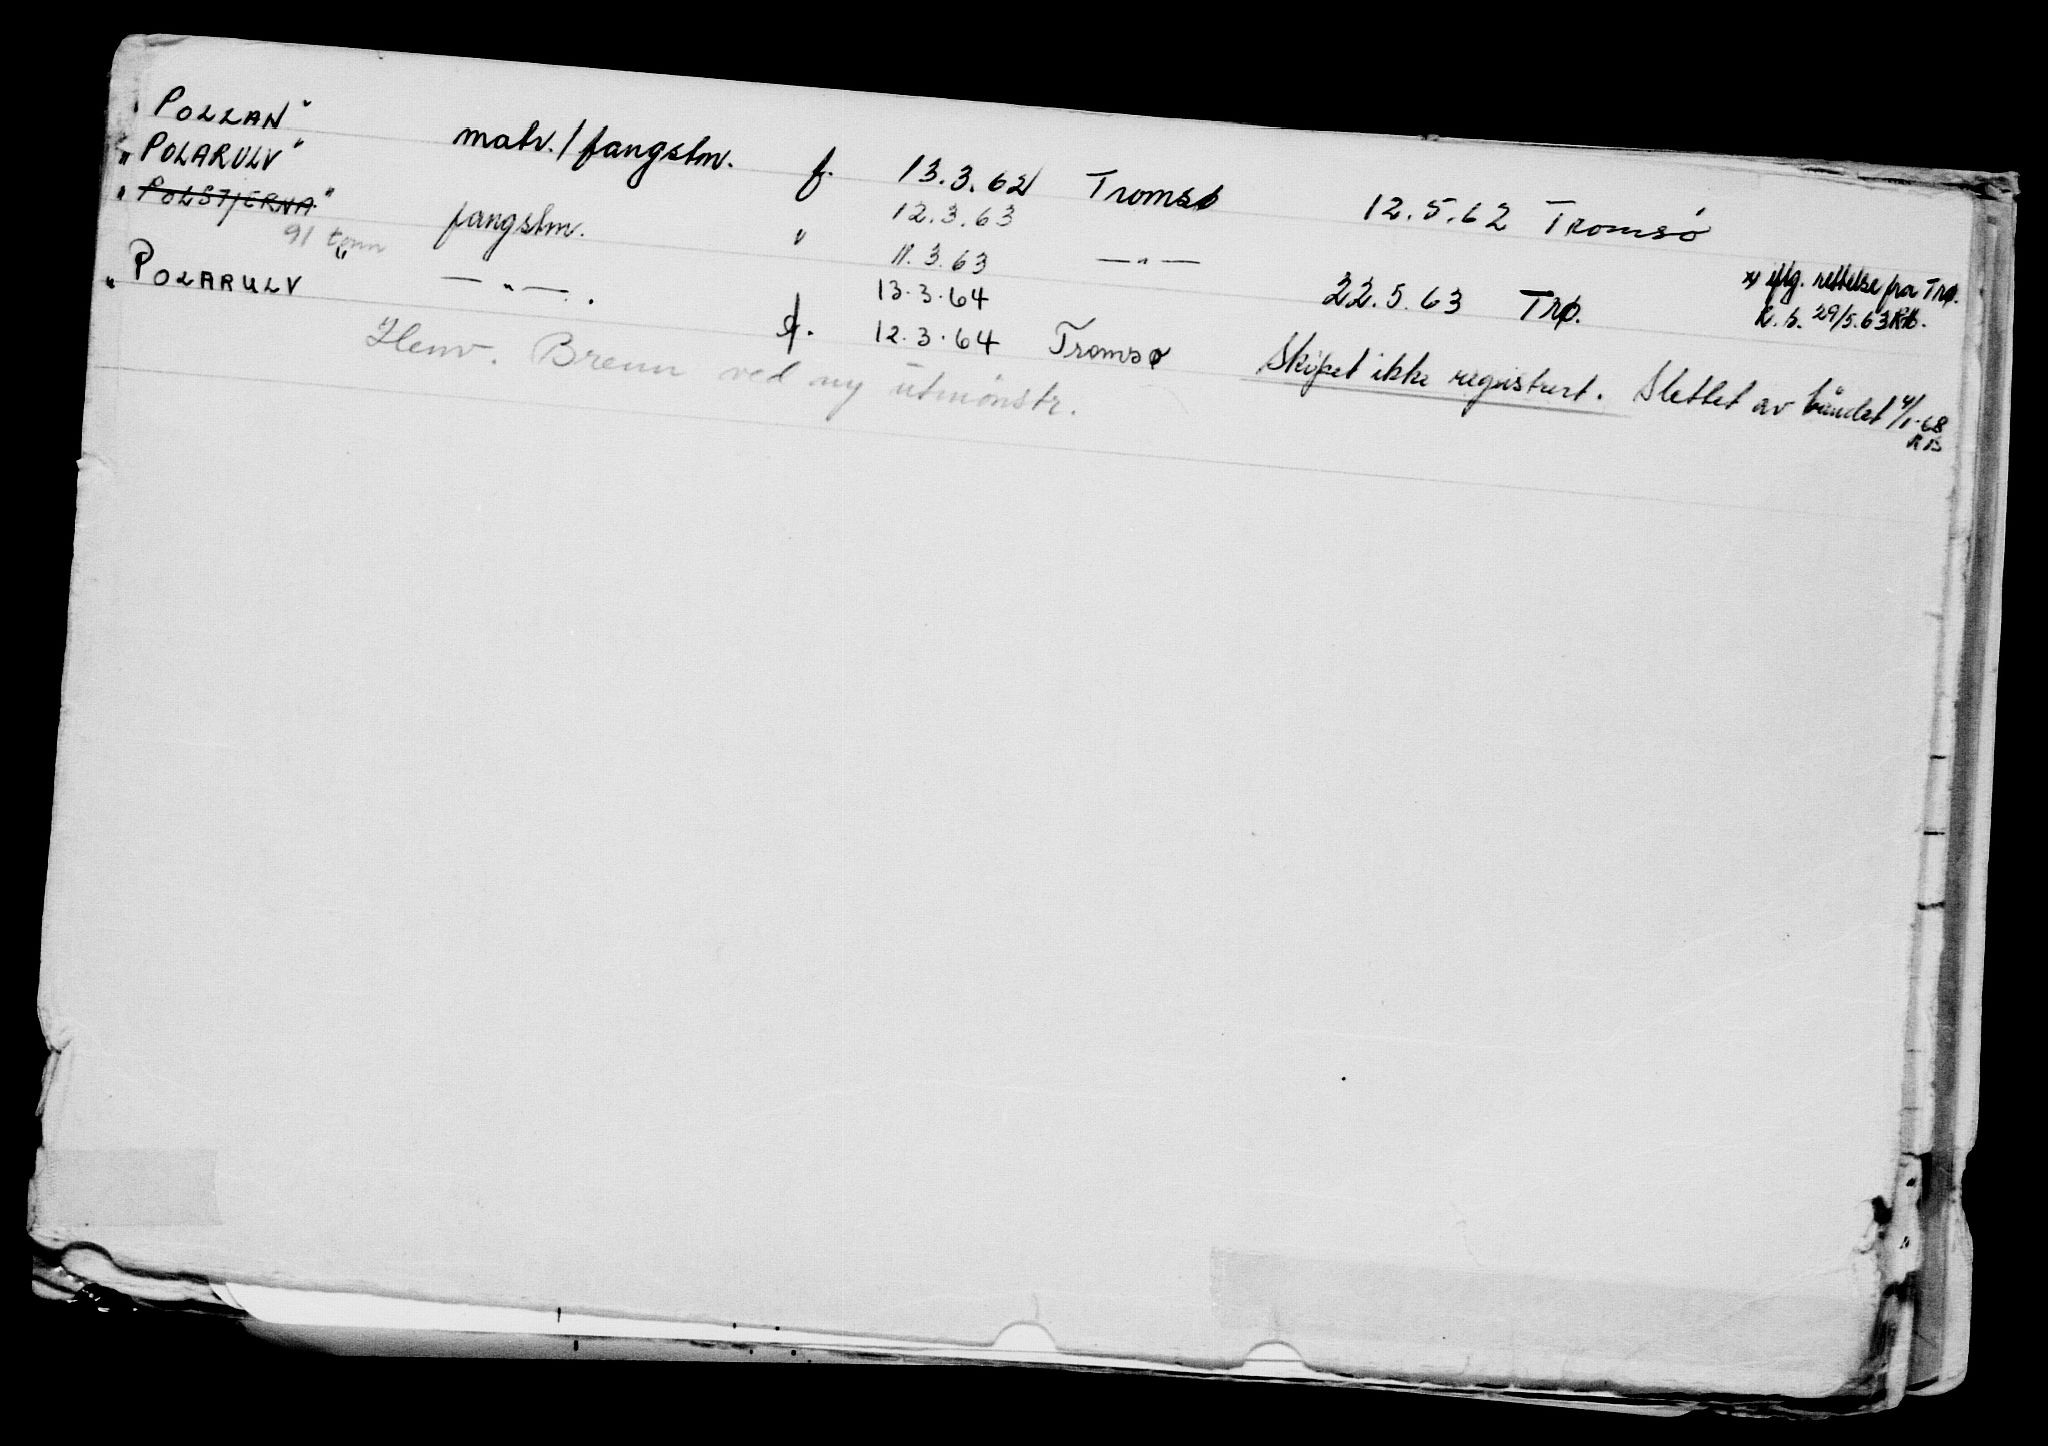 "POLLAN" matr./fangstm. f. 13.3.62 Tromsø 12.5.62 Tromsø
"POLARULV" 12.3.63
"POLSTJERNA" fangstm. " 11.3.63 —"— 22.5.63 Trø. x) iflg. rettelse fra Trø.
91 tonn 13.3.64 K.h. 29/5.63 RB.
"POLARULV" —"—. f. 12.3.64 Tromsø Skipet ikke registrert. Slettet av båndet 4/1-68
RB
Henv. Brenn ved ny utmönstr.